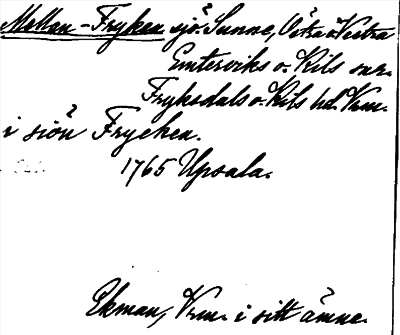 Mellan-Fryken sjö. Sunne, Östra o. Vestra
Emterviks o. Kils snr.
Fryksdals o. Kils hd. Vrm.
i siön Frychen.
1765 Upsala.
Ekman, Vrm. i sitt ämne.